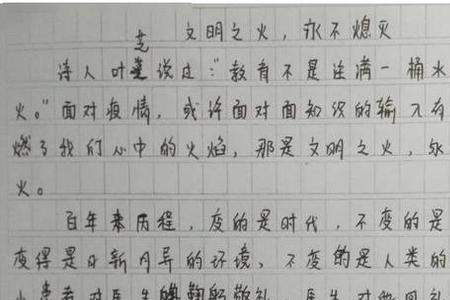 文明之火，永不熄灭
诗人叶芝说过："教育不是注满一桶水
火。"面对疫情，或许面对面知识的输入有
燃了我们心中的火焰，那是文明之火，永
火。
百年来历程，变的是时代，不变的是
变得是日新月异的环境、不变的是人类的
患者对医生鞠躬敬礼，医生对他回礼